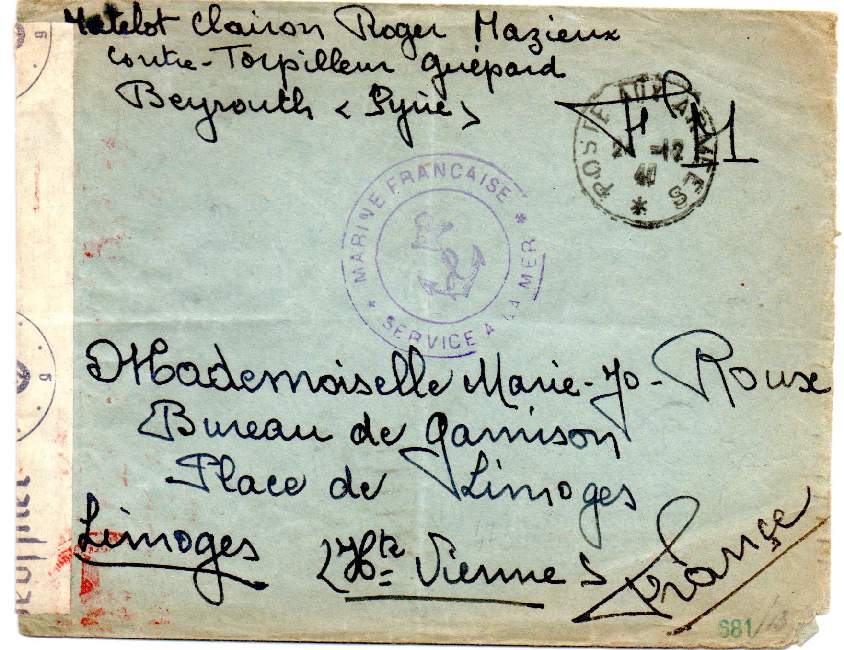 Matelot Clairon Roger Mazieux
Contre-Torpilleur Guépard
Beyrouth (Syrie)
FM
POSTE AUX ARMEES
2 -12
*
MARINE FRANCAISE
* SERVICE A LA MER *
Mademoiselle Marie-Jo-Roux
Bureau de Garnison
Place de Limoges
Limoges (Hte Vienne)
France
681/
6
5